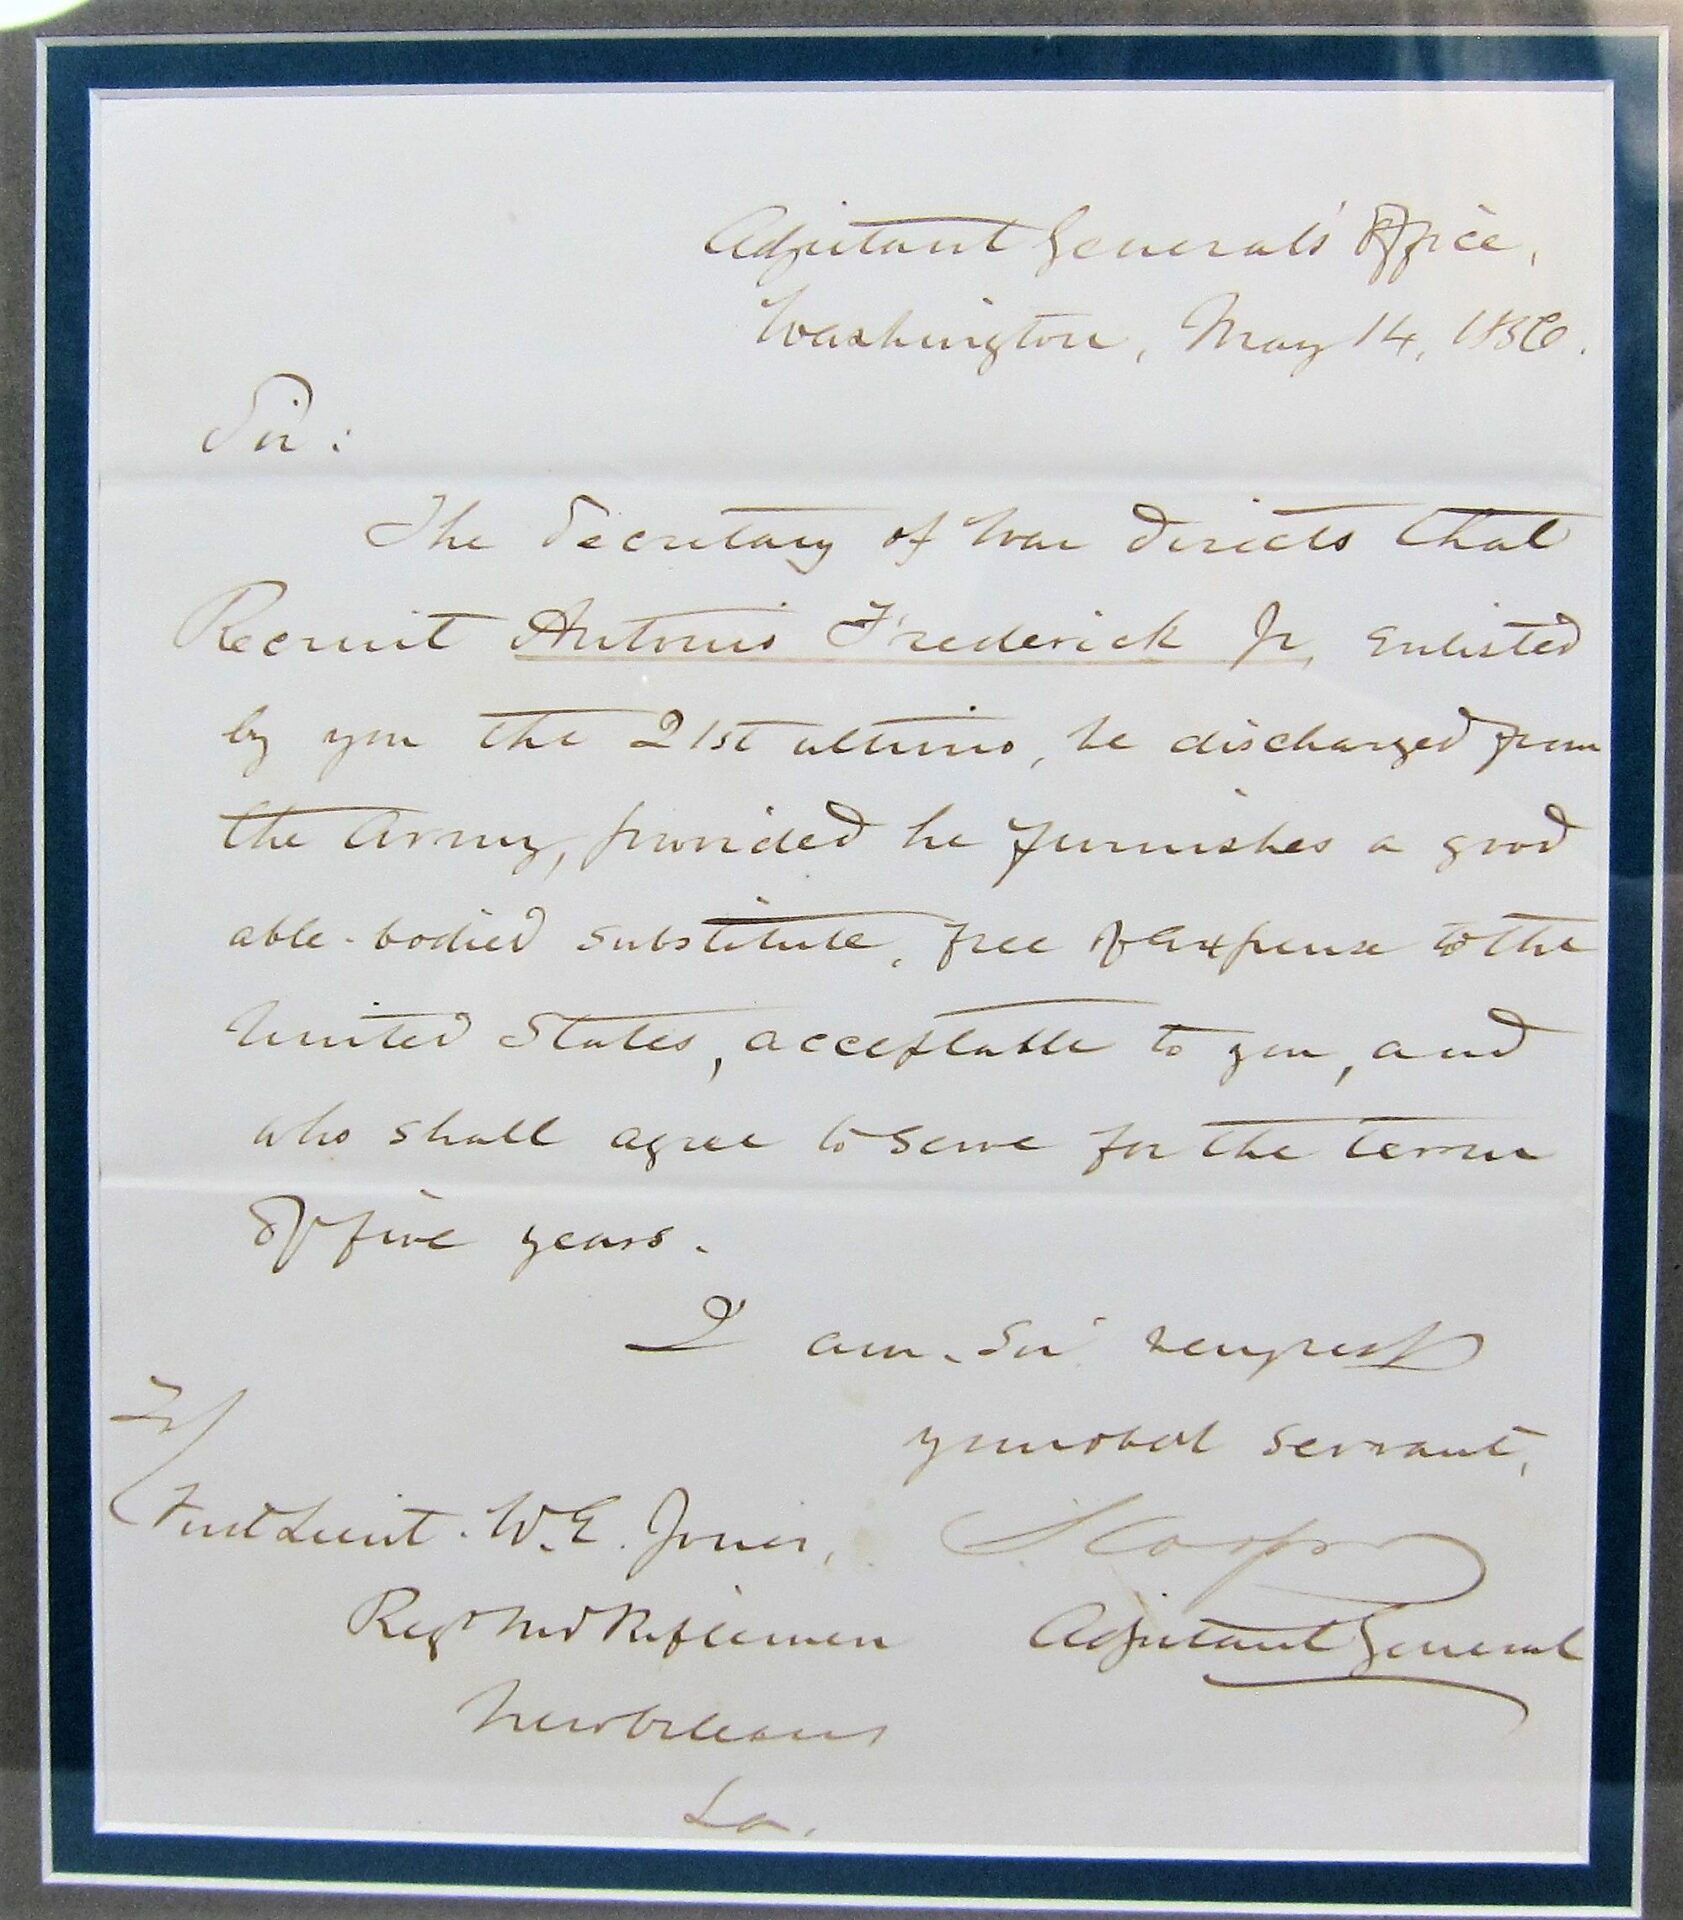 Adjutant General's Office,
Washington, May 14, 1856.
Sir:
The Secretary of War directs that
Recruit Antonio Frederick Jr, enlisted
by you the 21st ultimo, be discharged from
the Army, provided he furnishes a good
able-bodied substitute, free of expense to the
United States, acceptable to you, and
who shall agree to serve for the term
of five years.
I am, Sir
your obdt servant,
S. Cooper
Adjutant General
First Lieut. W. E. Jones,
Regt Mtd Riflemen
New Orleans
La.